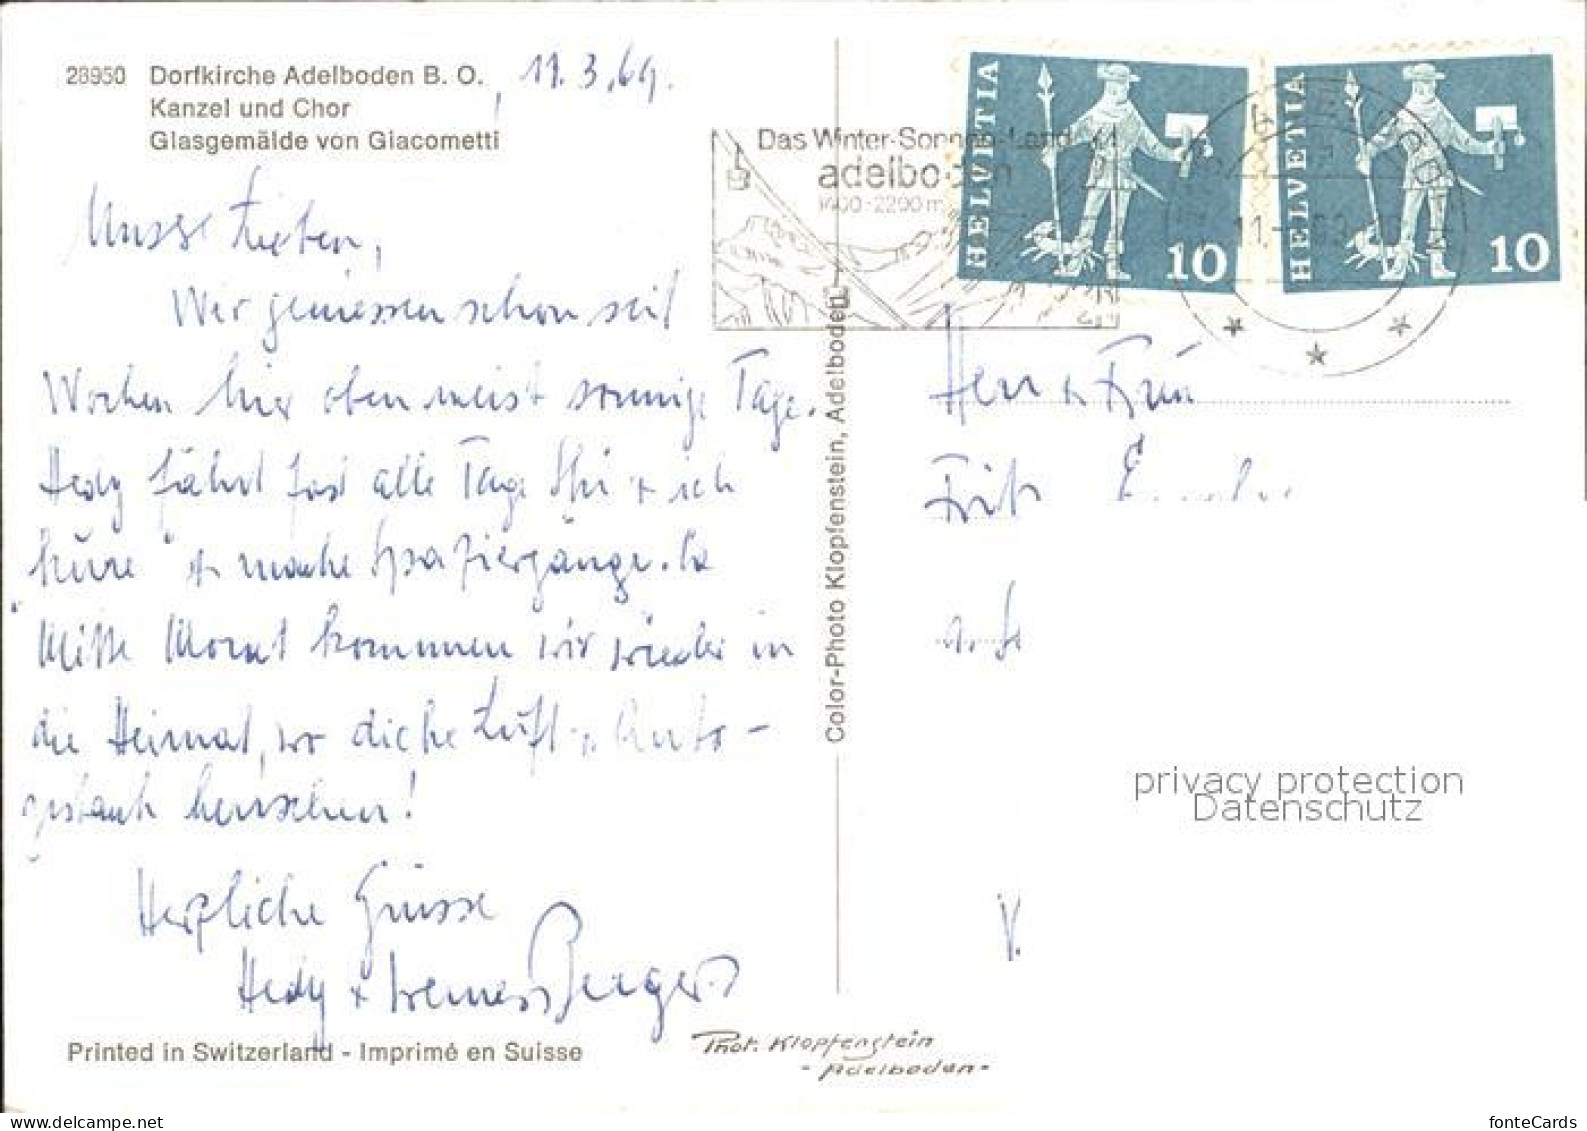 28950 Dorfkirche Adelboden B. O. 11.3.69.
Kanzel und Chor
Glasgemälde von Giacometti
Lieben,
Wir geniessen schon seit
Wochen hier oben meist sonnige Tage.
Hedy fährt fast alle Tage Ski + ich
"küre" + mache Spaziergänge. Ca
Mitte Monat kommen wir wieder in
die Heimat, wo dicke Luft Auto-
gestank herrschen!
Herzliche Grüsse
Hedy + Werner Berger
Printed in Switzerland - Imprimé en Suisse
Color-Photo Klopfenstein, Adelboden
Phot. Klopfenstein
- Adelboden -
Das Winter-Sonnen-Land
adelboden
1400-2200 m
HELVETIA 10
HELVETIA 10
Herr + Frau
Fritz
privacy protection
Datenschutz
fonteCards